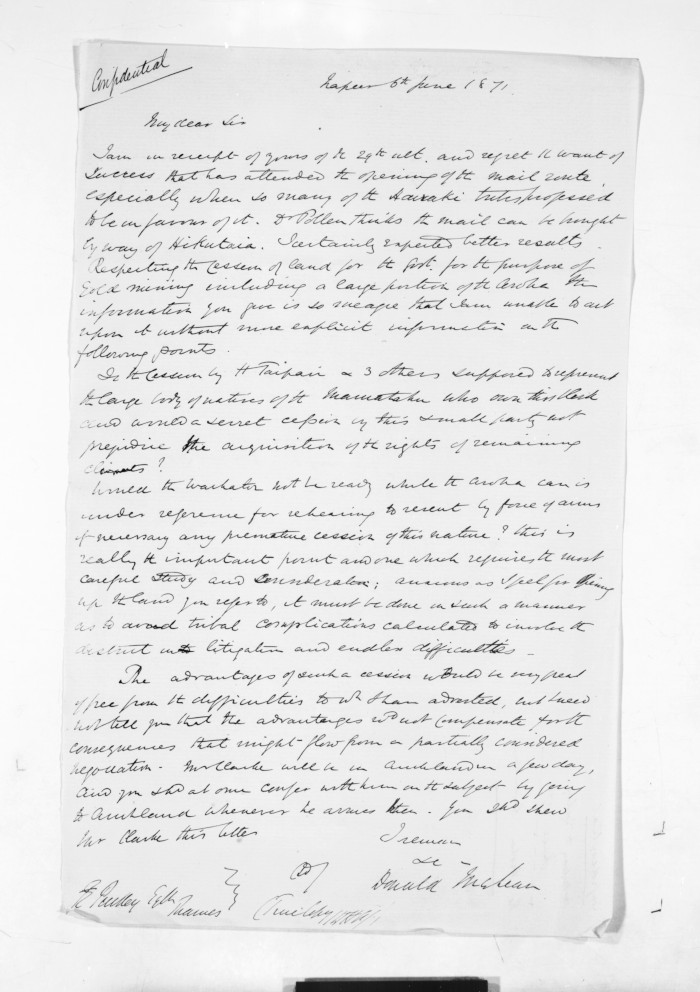 Confidential
Napier 6th June 1871.
My dear Sir
I am in receipt of yours of the 29th ult. and regret the want of
success that has attended the opening of the mail route
especially when so many of the Hauraki tribes professed
to be in favour of it. Dr Pollen thinks the mail can be brought
by way of Hikutaia. I certainly expected better results.
Respecting the Cession of land for the Govt. for the purpose of
Gold mining including a large portion of the Aroha the
information you give is so meagre that I am unable to act
upon it without more explicit information on the
following points.
Is the Cession by H Taipari & 3 others supposed to represent
the large body of natives of the Mamatahu who own this block
and would a secret cession by this small party not
prejudice the acquisition of the rights of remaining
claimants?
Would the Waikatos not be ready while the Aroha case is
under reference for rehearing to resent by force of arms
if necessary any premature cession of this nature? this is
really the important point and one which requires the most
careful study and consideration; anxious as I feel for opening
up the land you refer to, it must be done in such a manner
as to avoid tribal complications calculated to involve the
district into litigation and endless difficulties -
The advantages of such a cession would be very great
if free from the difficulties to wh I have adverted, but I need
not tell you that the advantages wd not compensate for the
consequences that might flow from a partially considered
negotiation - Mr Clarke will be in Auckland in a few days,
and you shd at once confer with him on the subject by going
to Auckland whenever he arrives then. You shd shew
Mr Clarke this letter
I remain
&c -
(Sd)
Donald McLean
Puckey Esqre
Thames
(True Copy